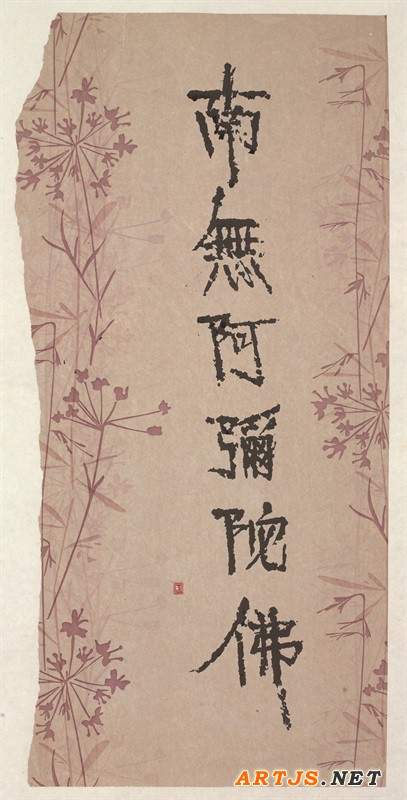 南無阿彌陀佛
ARTJS.NET